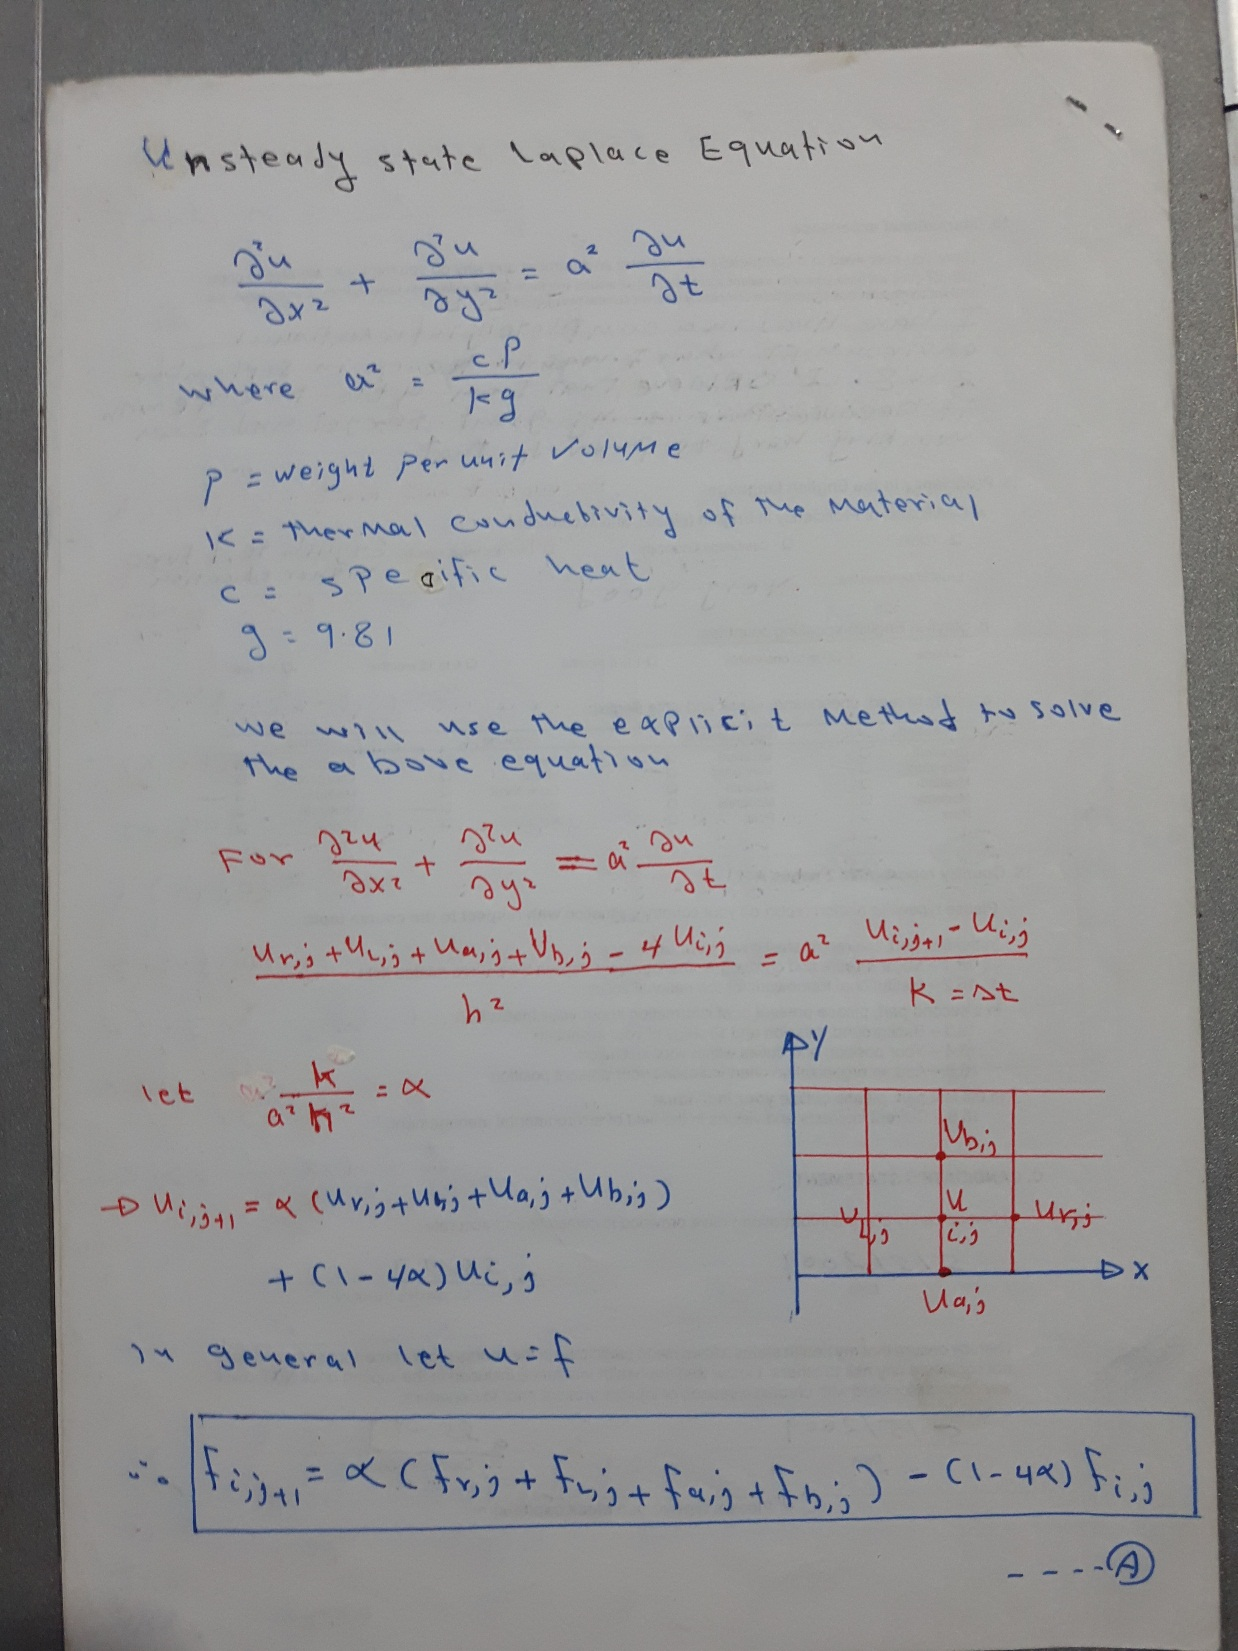 Unsteady state Laplace Equation
∂²u/∂x² + ∂²u/∂y² = a² ∂u/∂t
where a² = cρ/kg
ρ = weight per unit volume
K = thermal conductivity of the material
c = specific heat
g = 9.81
we will use the explicit method to solve
the above equation
For ∂²u/∂x² + ∂²u/∂y² = a² ∂u/∂t
(u_{r,j} + u_{L,j} + u_{a,j} + u_{b,j} - 4u_{i,j})/h² = a² (u_{i,j+1} - u_{i,j})/(k = Δt)
let k/(a² h²) = α
→ u_{i,j+1} = α (u_{r,j} + u_{L,j} + u_{a,j} + u_{b,j})
+ (1-4α) u_{i,j}
y
u_{b,j}
u_{L,j} u_{i,j} u_{r,j}
x
u_{a,j}
In general let u = f
∴ f_{i,j+1} = α (f_{r,j} + f_{L,j} + f_{a,j} + f_{b,j}) - (1-4α) f_{i,j}
---- Ⓐ